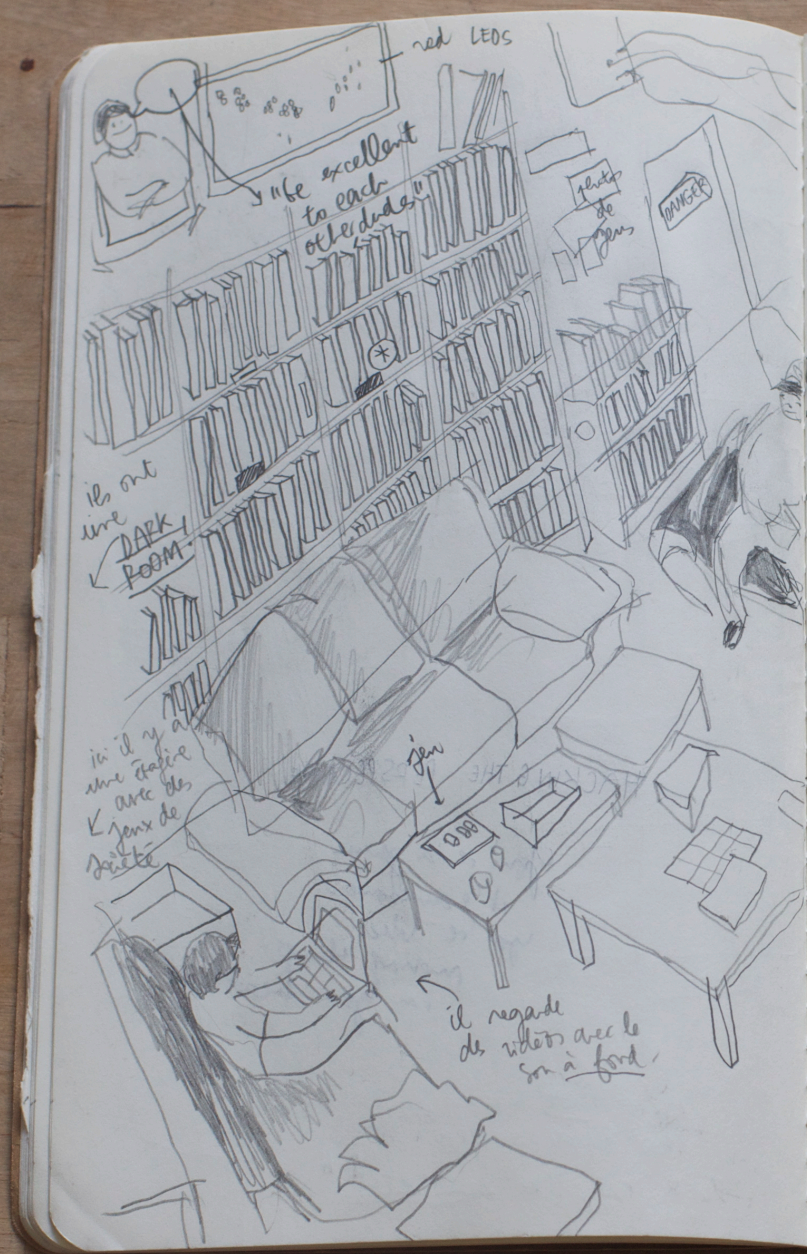 red LEDS
"be excellent
to each
other dudes"
photos
de
gens
DANGER
ils ont
une
DARK
ROOM!
ici il y a
une étagère
avec des
jeux de
société
jeu
il regarde
des vidéos avec le
son à fond.